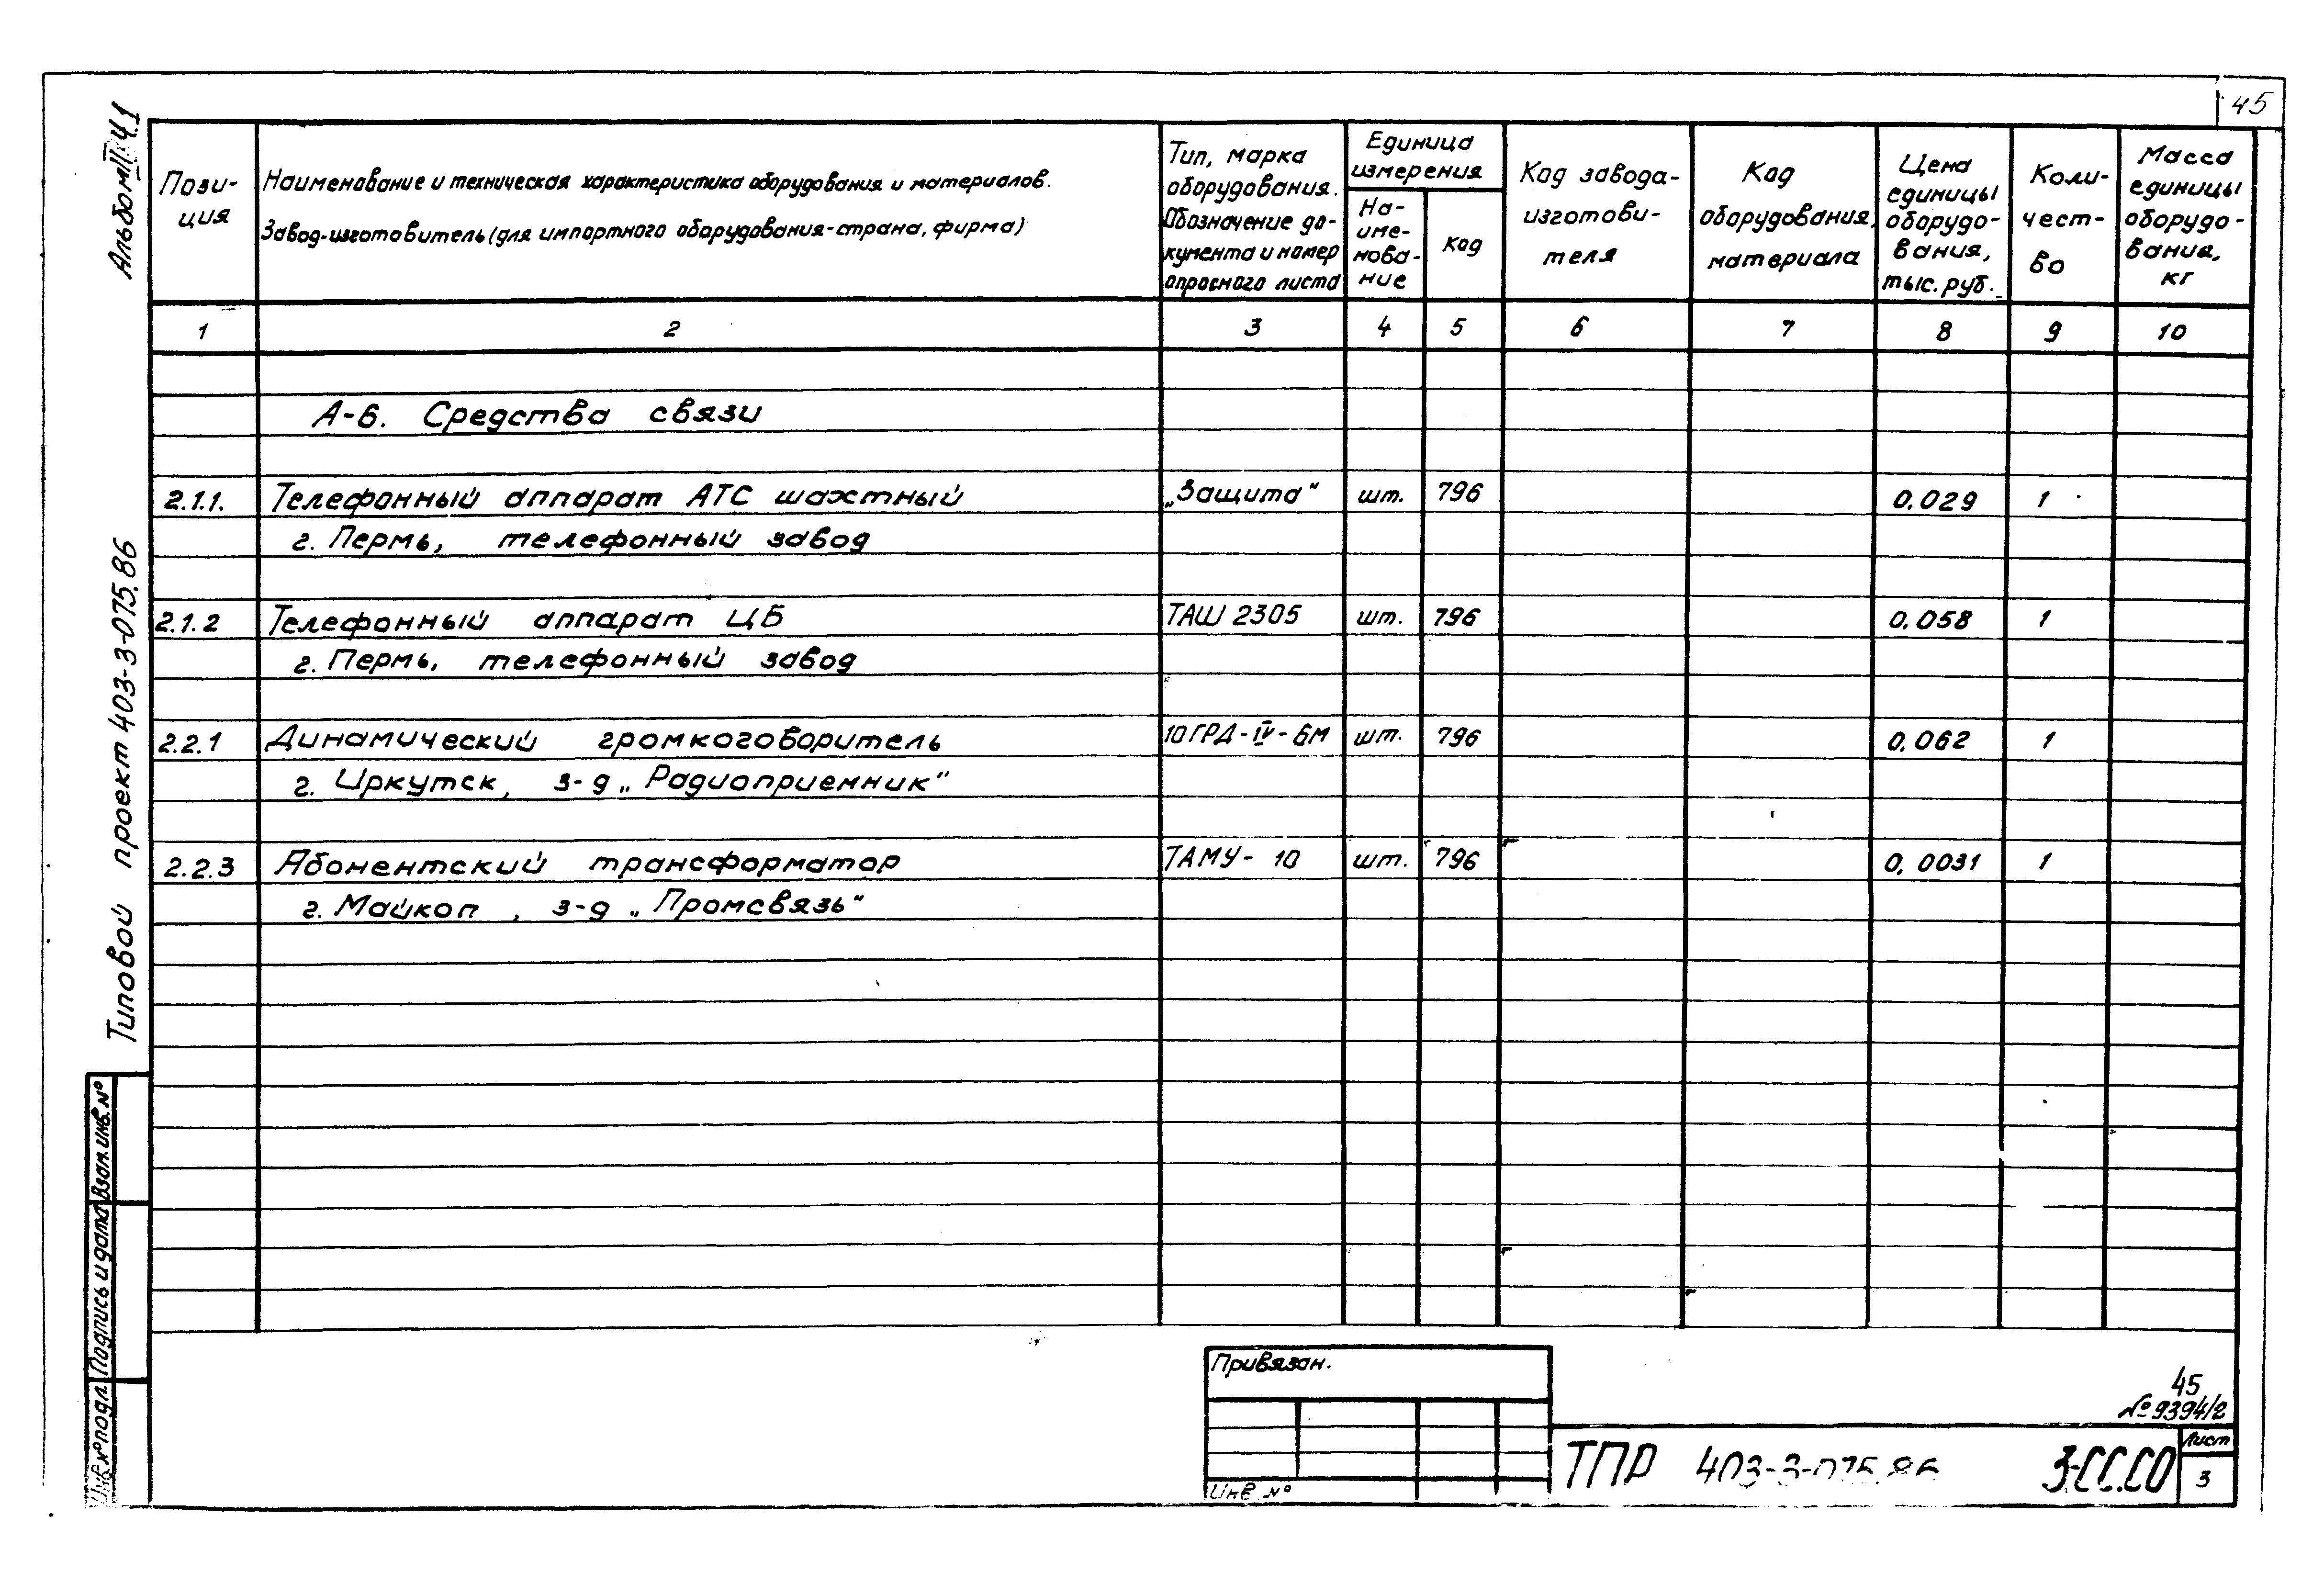 45
Альбом II ч.1
Типовой проект 403-3-075.86
Пози-
ция
Наименование и техническая характеристика оборудования и материалов.
Завод-изготовитель (для импортного оборудования-страна, фирма)
Тип, марка
оборудования.
Обозначение до-
кумента и номер
опросного листа
Единица
измерения
На-
име-
нова-
ние
Код
Код завода-
изготови-
теля
Код
оборудования,
материала
Цена
единицы
оборудо-
вания,
тыс. руб.
Коли-
чест-
во
Масса
единицы
оборудо-
вания,
кг
1 2 3 4 5 6 7 8 9 10
А-Б. Средства связи
2.1.1. Телефонный аппарат АТС шахтный „Защита“ шт. 796 0.029 1
г. Пермь, телефонный завод
2.1.2 Телефонный аппарат ЦБ ТАШ 2305 шт. 796 0.058 1
г. Пермь, телефонный завод
2.2.1 Динамический громкоговоритель 10ГРД-IV-6М шт. 796 0.062 1
г. Иркутск, з-д „Радиоприемник“
2.2.3 Абонентский трансформатор ТАМУ-10 шт. 796 0,0031 1
г. Майкоп, з-д „Промсвязь“
Взам. инв. №
Подпись и дата
Инв. № подл.
Привязан.
Инв №
45
№ 9394/2
ТПР 403-3-075.86 3-СС.СО
Лист
3